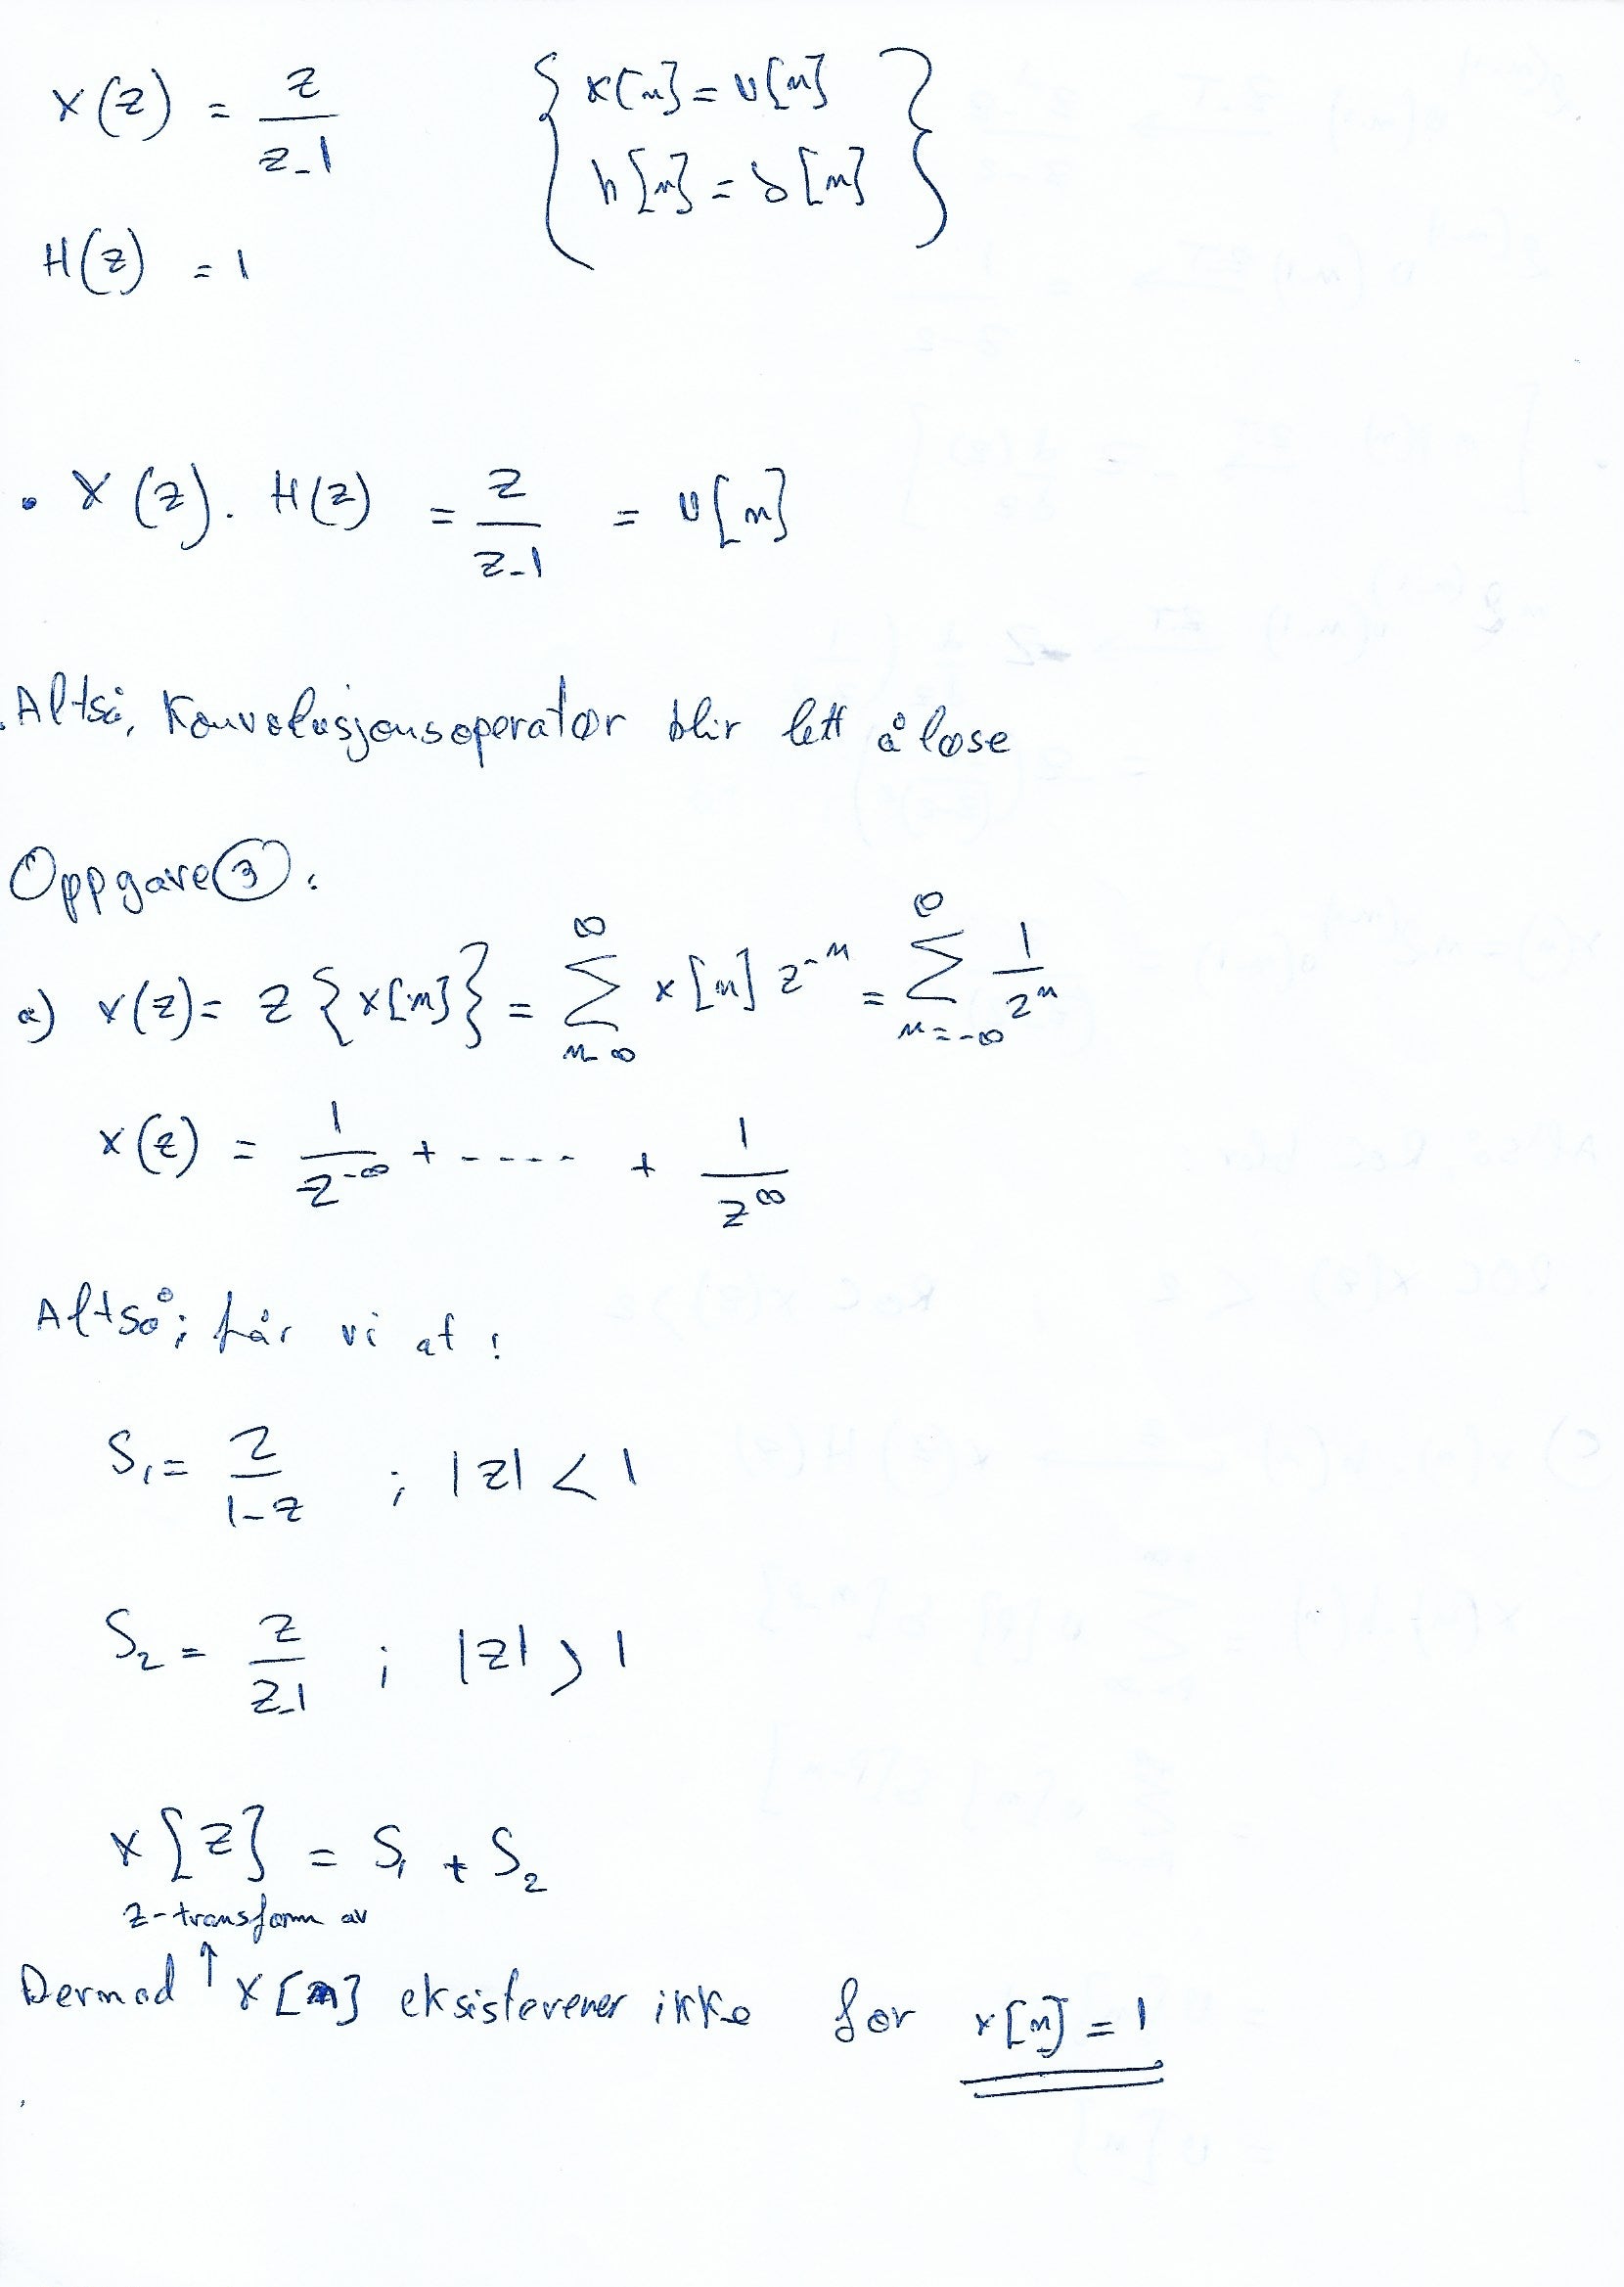 X(z) = z/(z-1) { x[n] = u[n]
h[n] = δ[n] }
H(z) = 1
• X(z) . H(z) = z/(z-1) = u[n]
Altså, Konvolusjonsoperator blir lett å løse
Oppgave 3 :
a) X(z) = Z {x[n]} = ∑_{n=-∞}^{∞} x[n] z^{-n} = ∑_{n=-∞}^{∞} 1/z^n
X(z) = 1/z^{-∞} + ---- + 1/z^{∞}
Altså; får vi at :
S₁ = z/(1-z) ; |z| < 1
S₂ = z/(z-1) ; |z| > 1
X[z] = S₁ + S₂
z-transform av
Dermed ↑ x[n] eksisterener ikke for x[n] = 1